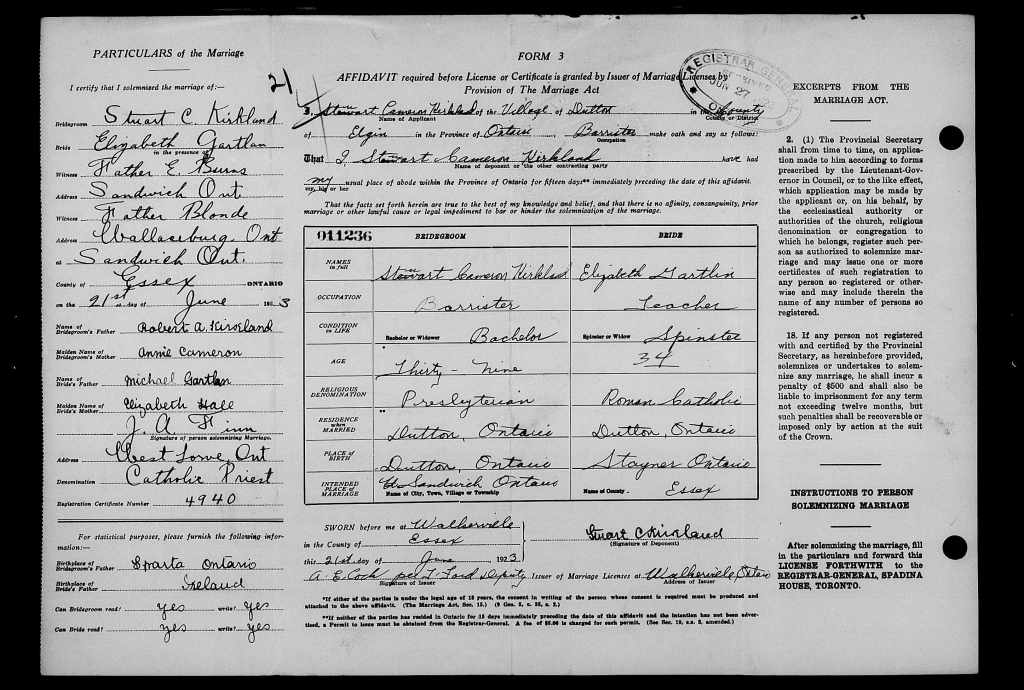 PARTICULARS of the Marriage
I certify that I solemnized the marriage of:—
Bridegroom Stuart C. Kirkland
Bride Elizabeth Gartlan
in the presence of
Witness Father E Burns
Address Sandwich Ont
Witness Father Blonde
Address Wallaceburg, Ont
at Sandwich Ont.
County of Essex ONTARIO
on the 21st day of June 1923
Name of Bridegroom's Father Robert A. Kirkland
Maiden Name of Bridegroom's Mother Annie Cameron
Name of Bride's Father Michael Gartlan
Maiden Name of Bride's Mother Elizabeth Hall
J. A. Finn
Signature of person solemnizing Marriage.
Address West Lorne, Ont
Denomination Catholic Priest
Registration Certificate Number 4940
For statistical purposes, please furnish the following information:—
Birthplace of Bridegroom's Father Sparta Ontario
Birthplace of Bride's Father Ireland
Can Bridegroom read? yes write? yes
Can Bride read? yes write? yes
21
FORM 3
AFFIDAVIT required before License or Certificate is granted by Issuer of Marriage Licenses by
Provision of The Marriage Act
REGISTRAR GENERAL
JUN 27
I, Stewart Cameron Kirkland of the Village of Dutton in the County
Name of Applicant
County or District
of Elgin in the Province of Ontario, Barrister make oath and say as follows:
Occupation
That I, Stewart Cameron Kirkland have had
Name of deponent or the other contracting party
my usual place of abode within the Province of Ontario for fifteen days** immediately preceding the date of this affidavit.
my, his or her
That the facts set forth herein are to the best of my knowledge and belief, and that there is no affinity, consanguinity, prior
marriage or other lawful cause or legal impediment to bar or hinder the solemnization of the marriage.
011236 BRIDEGROOM BRIDE
NAMES in full Stewart Cameron Kirkland Elizabeth Gartlin
OCCUPATION Barrister Teacher
CONDITION IN LIFE Bachelor or Widower Bachelor Spinster or Widow Spinster
AGE Thirty-Nine 34
RELIGIOUS DENOMINATION Presbyterian Roman Catholic
RESIDENCE when MARRIED Dutton, Ontario Dutton, Ontario
PLACE OF BIRTH Dutton, Ontario Stayner Ontario
INTENDED PLACE of MARRIAGE Sandwich Ontario Essex
Name of City, Town, Village or Township Name of County
SWORN before me at Walkerville
in the County of Essex
this 21st day of June 1923
Stuart C Kirkland
(Signature of Deponent)
A. E. Cook per F. Ford Deputy Issuer of Marriage Licenses at Walkerville, Ontario
Signature of Issuer Address of Issuer
*If either of the parties is under the legal age of 18 years, the consent in writing of the person whose consent is required must be produced and
attached to the above affidavit. (The Marriage Act, Sec. 15.)
**If neither of the parties has resided in Ontario for 15 days immediately preceding the date of this affidavit and the intention has not been adver-
tised, a Permit to issue must be obtained from the Registrar-General. A fee of $5.00 is charged for each permit.
EXCERPTS FROM THE
MARRIAGE ACT.
2. (1) The Provincial Secretary
shall from time to time, on applica-
tion made to him according to forms
prescribed by the Lieutenant-Gov-
ernor in Council, or to the like effect,
which application may be made by
the applicant or, on his behalf, by
the ecclesiastical authority or
authorities of the church, religious
denomination or congregation to
which he belongs, register such per-
son as authorized to solemnize mar-
riage and may issue one or more
certificates of such registration to
any person so registered or other-
wise and may include therein the
name of any number of persons so
registered.
18. If any person not registered
with and certified by the Provincial
Secretary, as hereinbefore provided,
solemnizes or undertakes to solem-
nize any marriage, he shall incur a
penalty of $500 and shall also be
liable to imprisonment for any term
not exceeding twelve months, but
such penalties shall be recoverable or
imposed only by action at the suit
of the Crown.
INSTRUCTIONS TO PERSON
SOLEMNIZING MARRIAGE
After solemnizing the marriage, fill
in the particulars and forward this
LICENSE FORTHWITH to the
REGISTRAR-GENERAL, SPADINA
HOUSE, TORONTO.